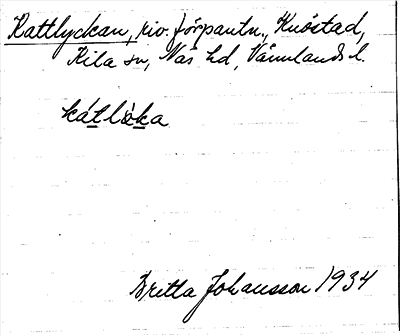 Kattlyckan, riv. förpantn., Knöstad,
Kila sn, Näs hd, Värmlands l.
kátlə̀ka
Britta Johansson 1934